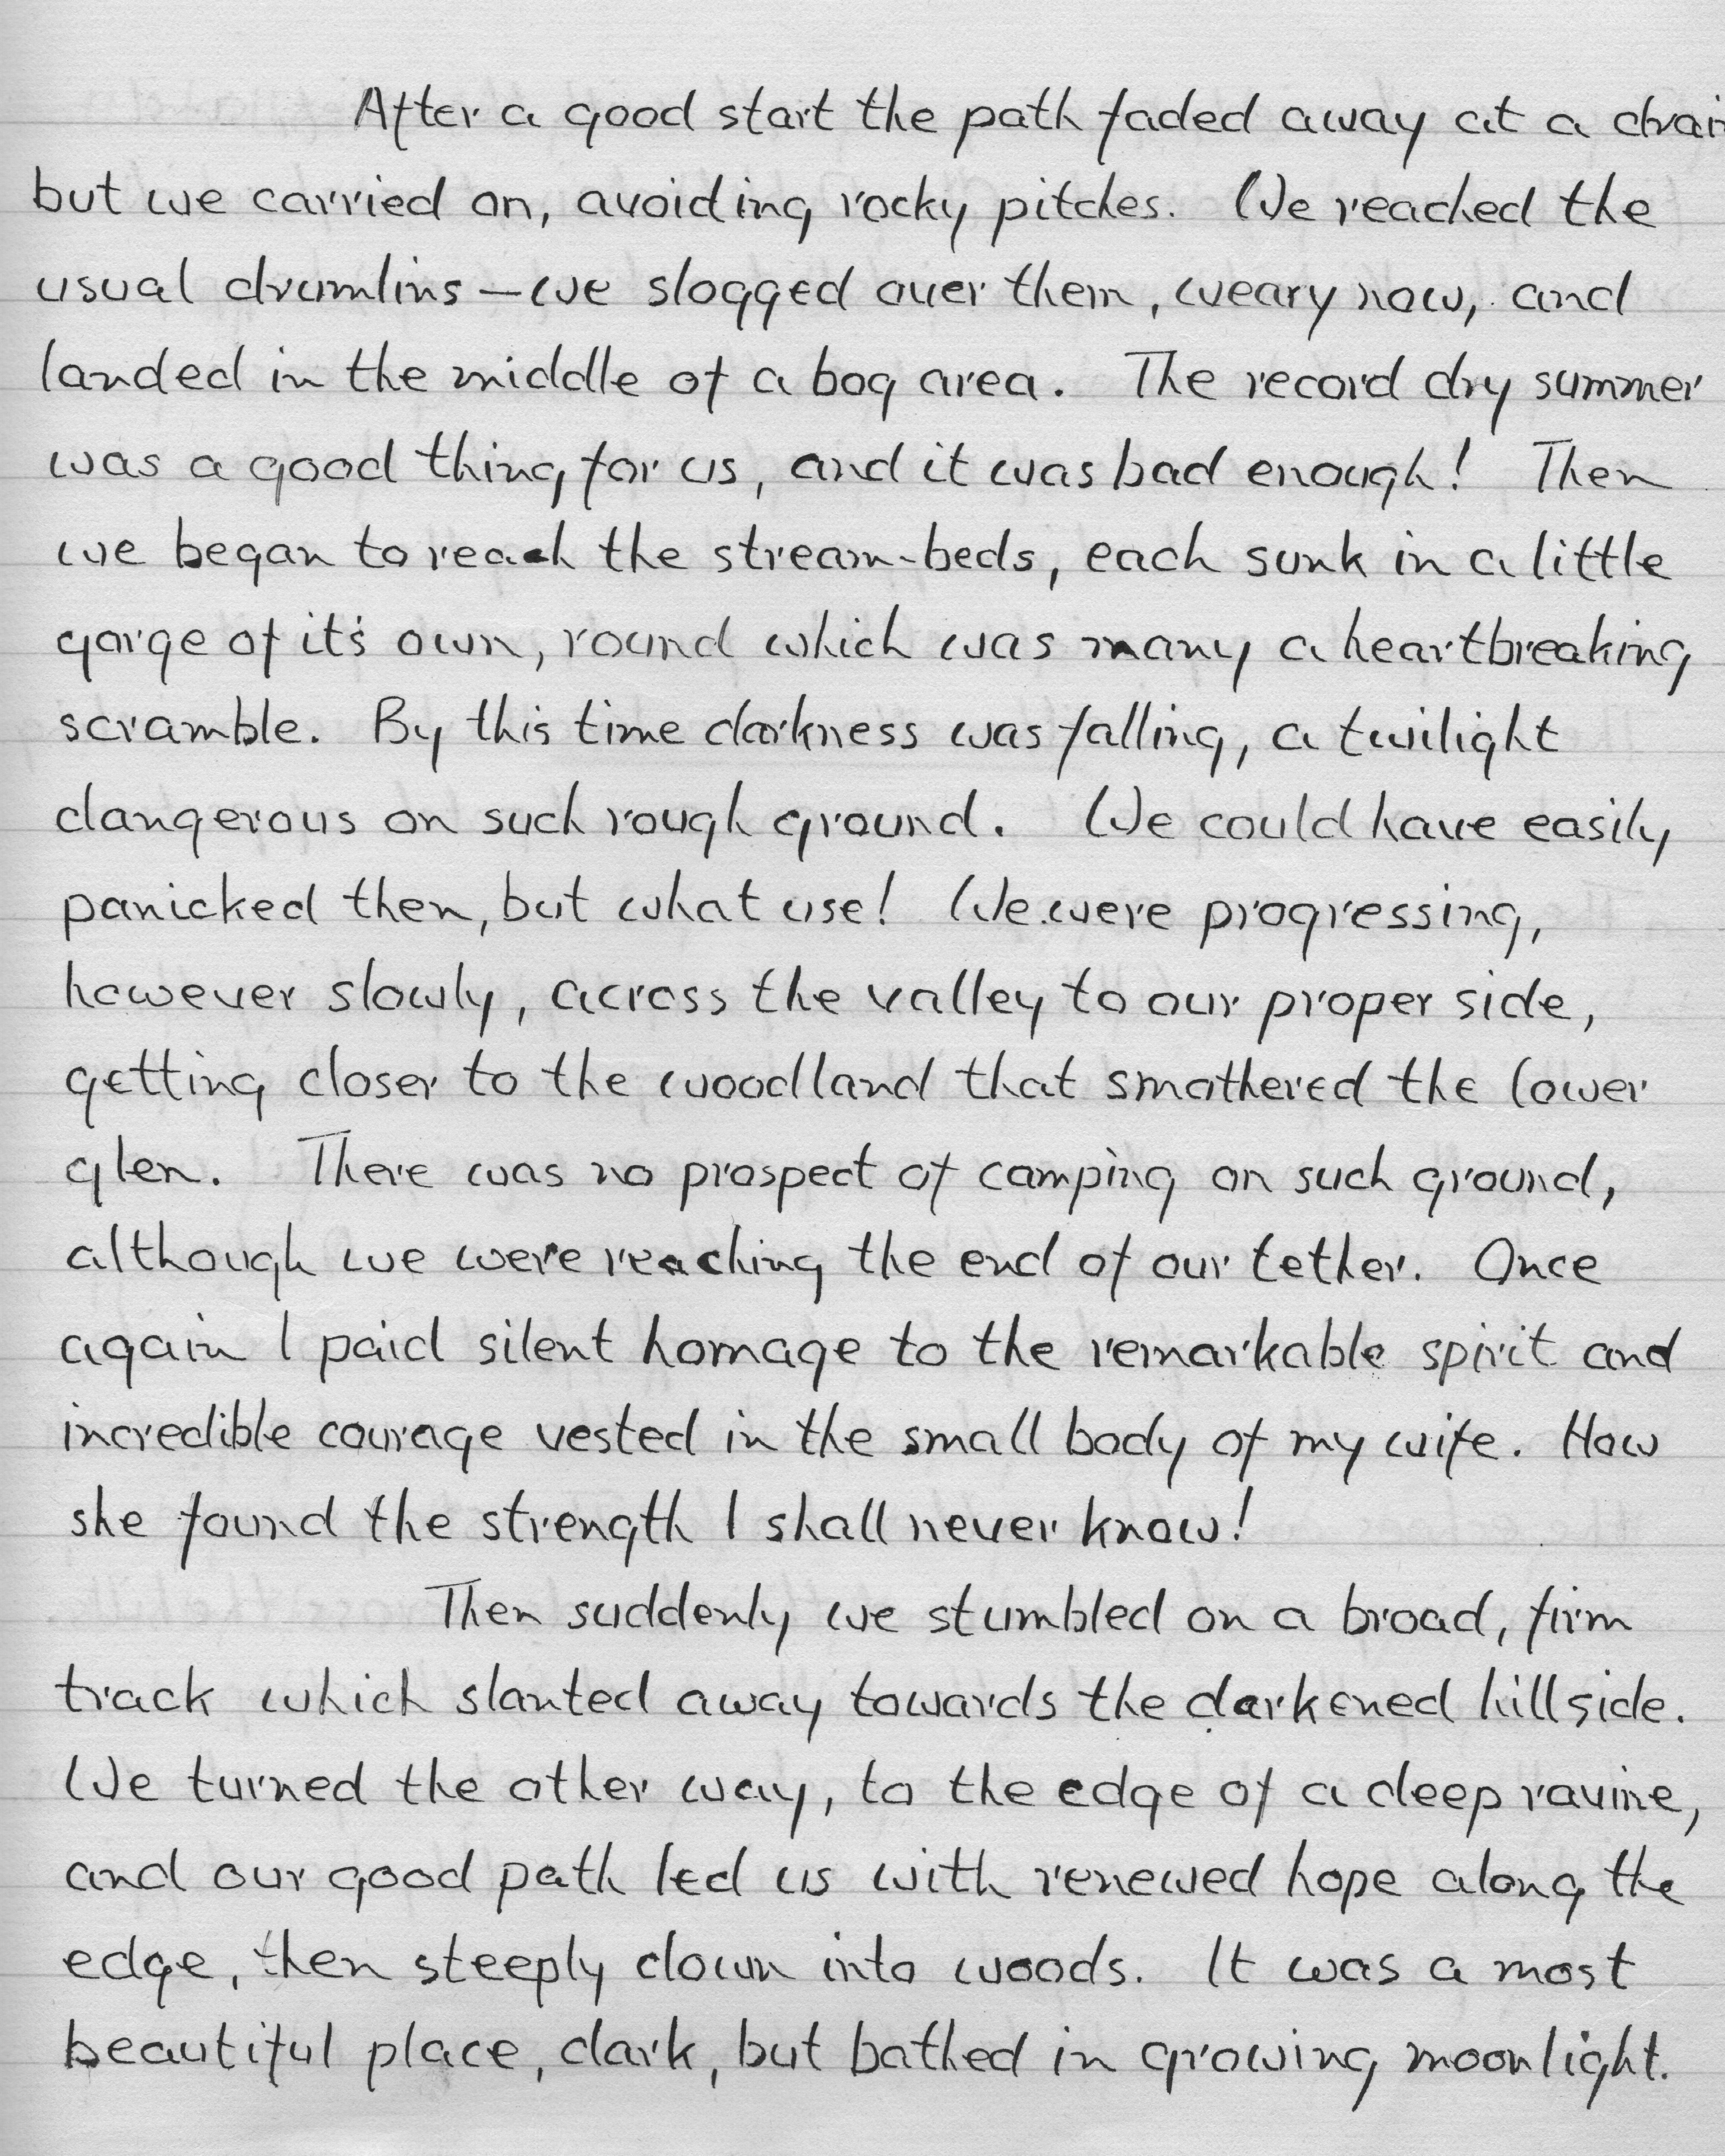 After a good start the path faded away at a
but we carried on, avoiding rocky pitches. We reached the
usual drumlins — we slogged over them, weary now, and
landed in the middle of a bog area. The record dry summer
was a good thing for us, and it was bad enough! Then
we began to reach the stream-beds, each sunk in a little
gorge of it's own, round which was many a heartbreaking
scramble. By this time darkness was falling, a twilight
dangerous on such rough ground. We could have easily
panicked then, but what use! We were progressing,
however slowly, across the valley to our proper side,
getting closer to the woodland that smothered the lower
glen. There was no prospect of camping on such ground,
although we were reaching the end of our tether. Once
again I paid silent homage to the remarkable spirit and
incredible courage vested in the small body of my wife. How
she found the strength I shall never know!
Then suddenly we stumbled on a broad, firm
track which slanted away towards the darkened hillside.
We turned the other way, to the edge of a deep ravine,
and our good path led us with renewed hope along the
edge, then steeply down into woods. It was a most
beautiful place, dark, but bathed in growing moonlight.